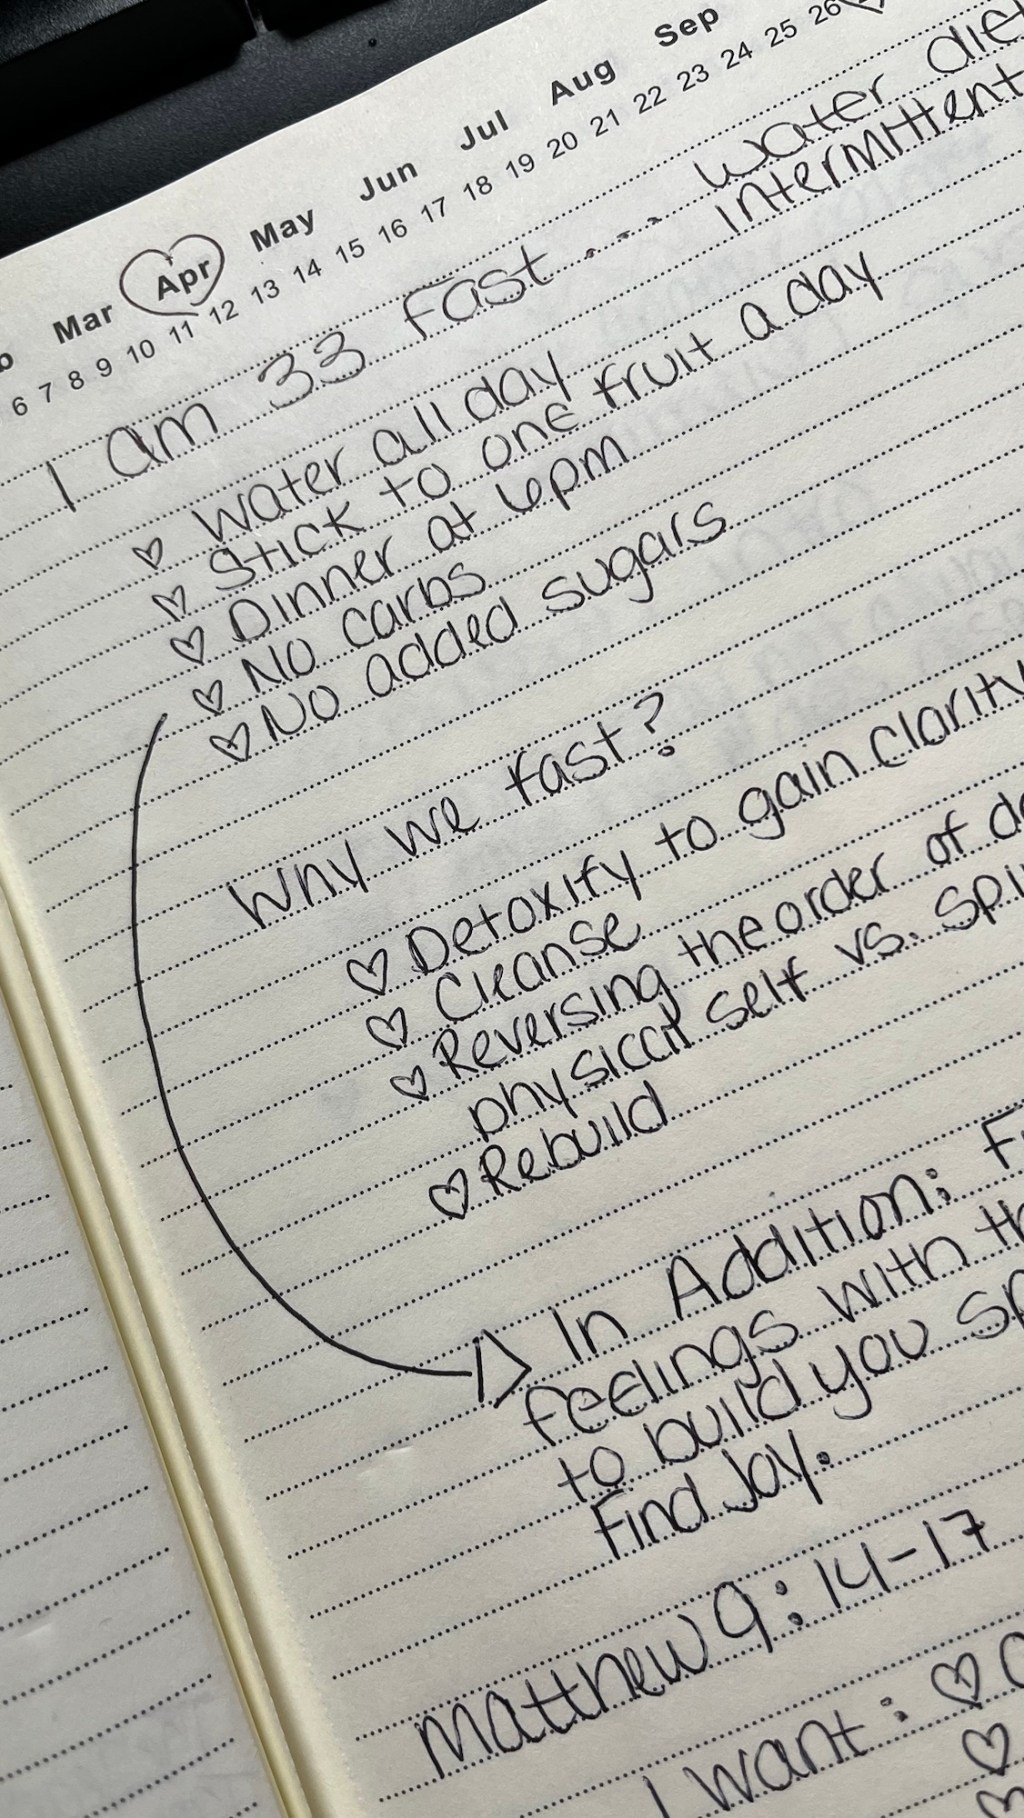 Mar Apr May Jun Jul Aug Sep
6 7 8 9 10 11 12 13 14 15 16 17 18 19 20 21 22 23 24 25 26
I am 33 Fast... water
intermittent
♡ Water all day
♡ Stick to one fruit a day
♡ Dinner at 6pm
♡ No carbs
♡ No added sugars
Why we fast?
♡ Detoxify to gain clarity
♡ Cleanse
♡ Reversing the order of
physical self vs.
♡ Rebuild
In Addition:
feelings with
to build you
Find Joy.
Matthew 9:14-17
I want: ♡
♡